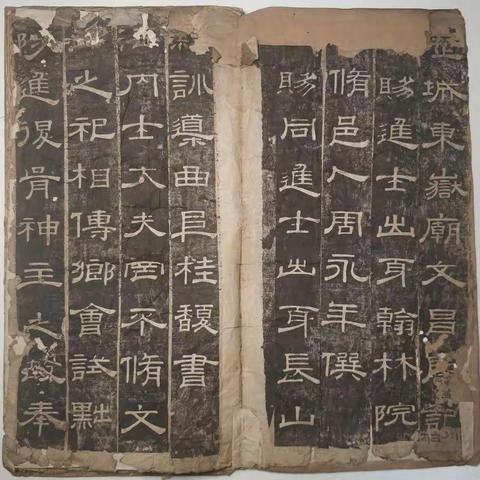 城東嶽廟文昌
賜進士出身翰林院
脩邑人周永年僎
賜同進士出身長山
訓導曲阜桂馥書
內士大夫罔不脩文
之祀相傳鄉會試點
進退皆神主之奉